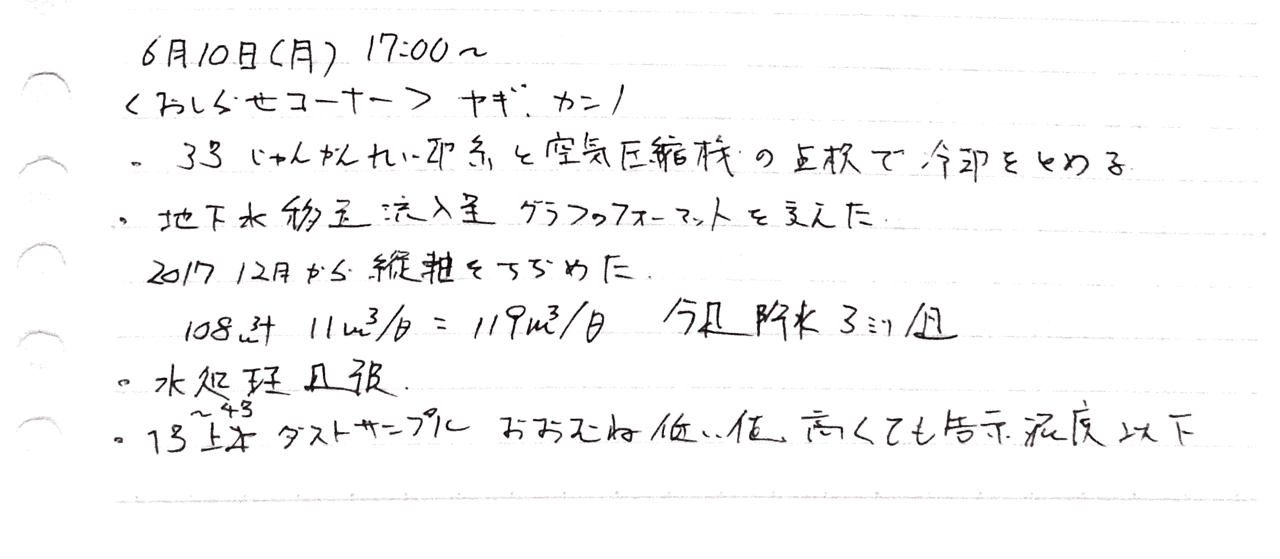 6月10日(月) 17:00~
<おしらせコーナー> ヤギ、カンノ
・3号 じゅんかんれい却系と空気圧縮機の点検で冷却をとめる
・地下水移送 流入量 グラフのフォーマットを変えた。
2017 12月から縦軸をちぢめた。
108m³+ 11m³/日 = 119m³/日 今週 降水 3ミリ/週
・水処理 週報.
・1号~4号 上 ダストサンプル おおむね低い値、高くても告示濃度以下